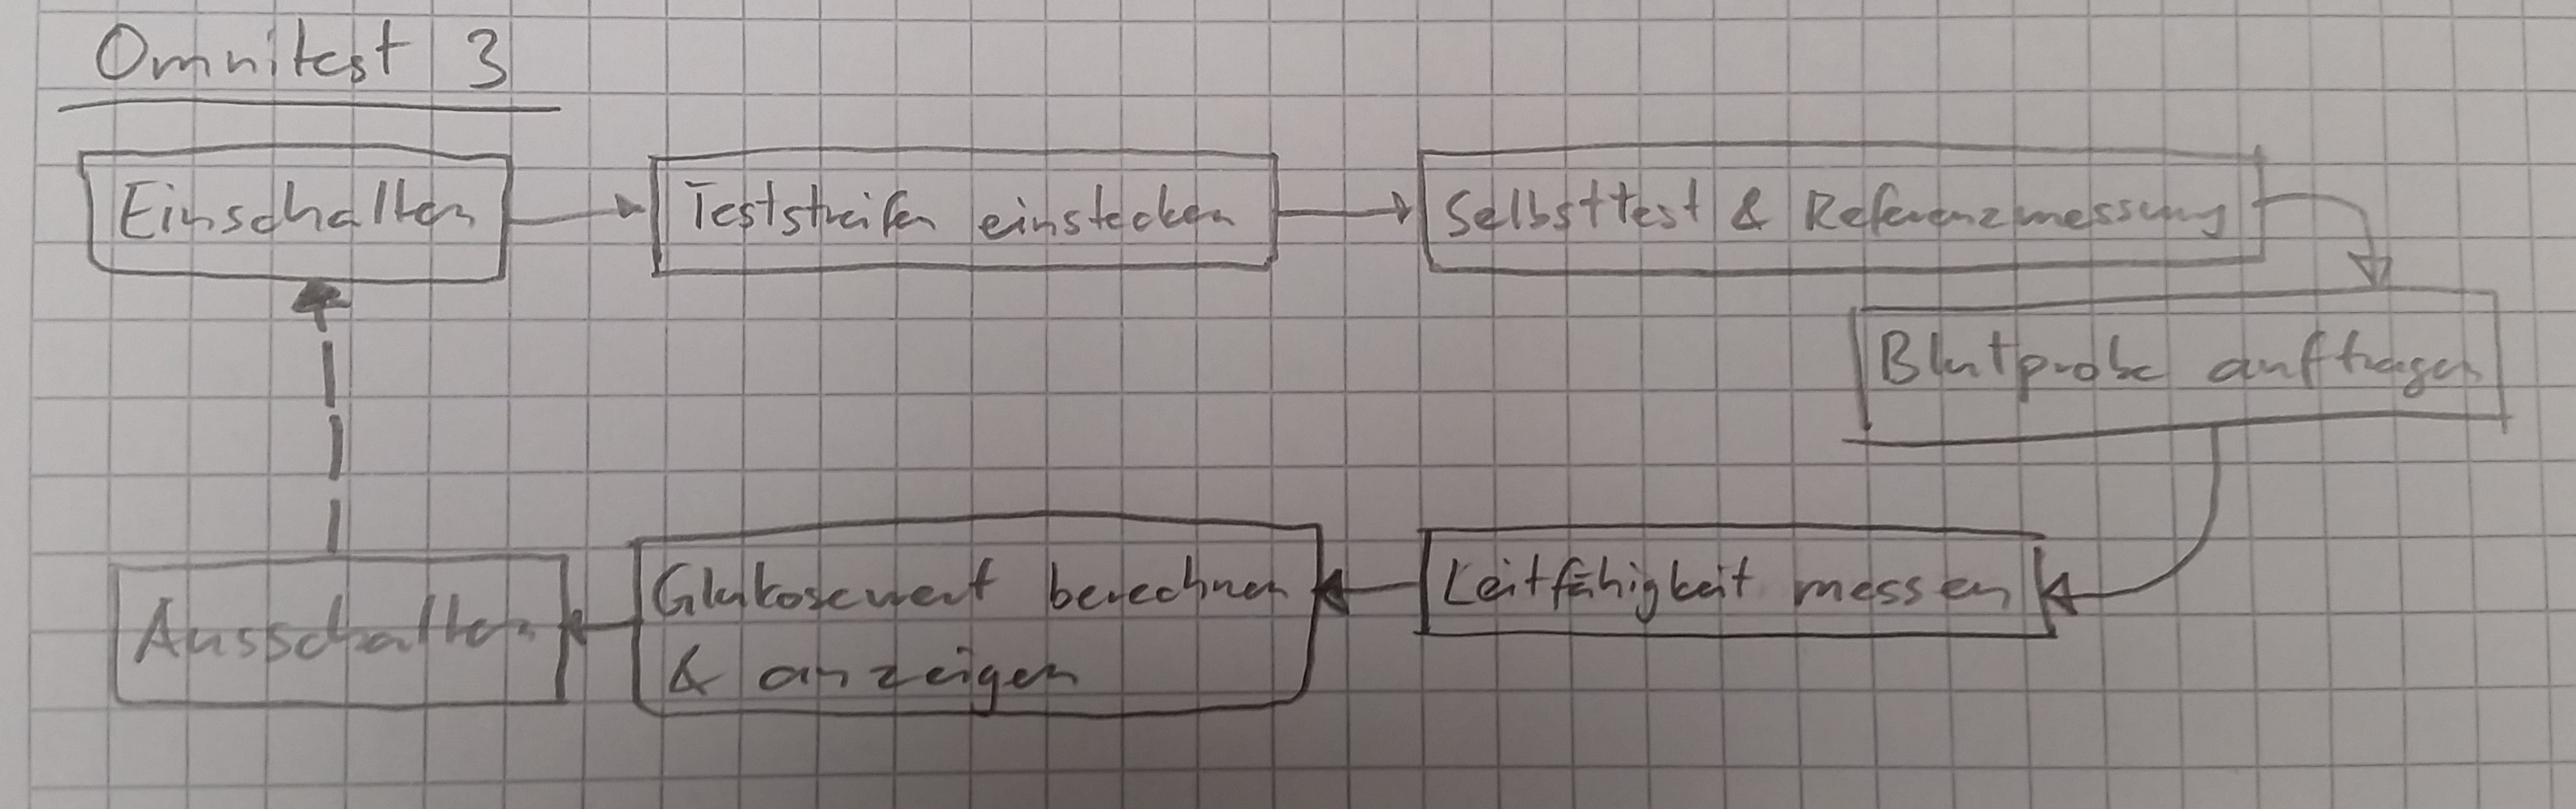 Omnitest 3
Einschalten
Teststreifen einstecken
Selbsttest & Referenzmessung
Blutprobe auftragen
Leitfähigkeit messen
Glukosewert berechnen
& anzeigen
Ausschalten